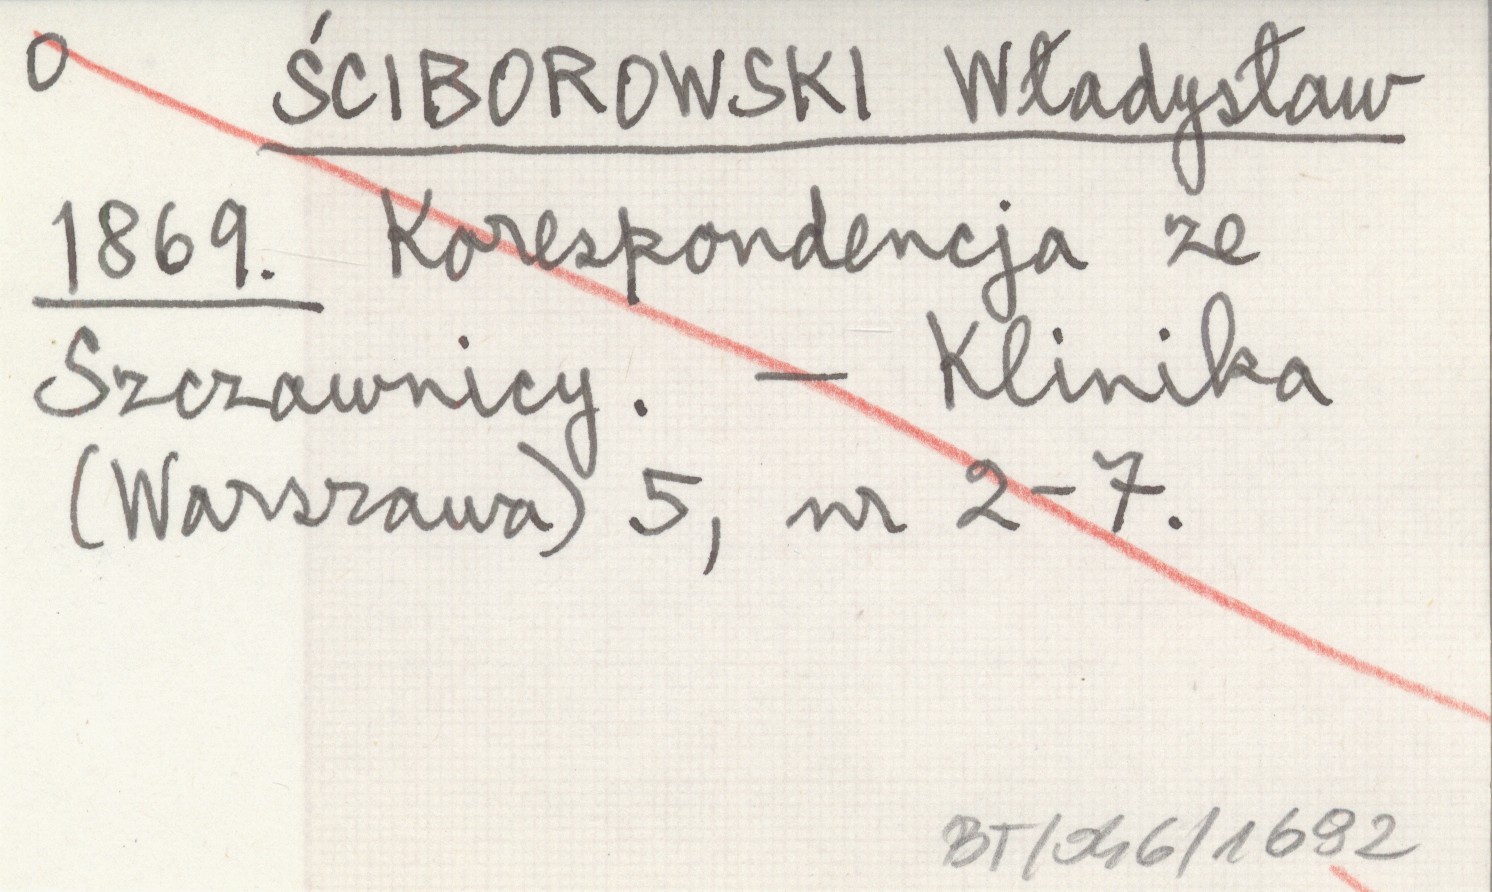 O ŚCIBOROWSKI Władysław
1869. Korespondencja ze
Szczawnicy. — Klinika
(Warszawa) 5, nr 2-7.
BT/046/1692